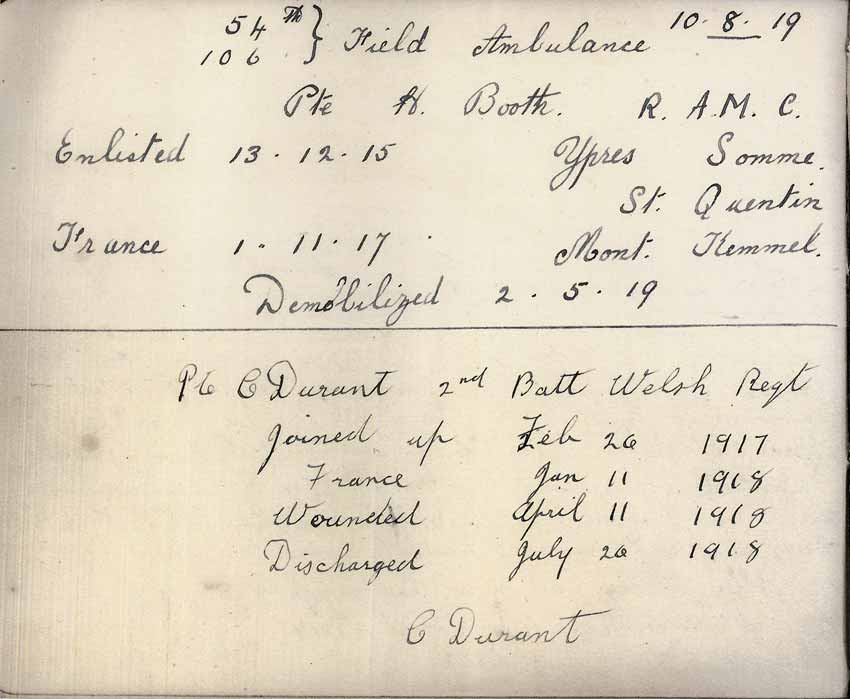 54th } Field Ambulance 10.8.19
106
Pte H. Booth. R.A.M.C.
Enlisted 13.12.15 Ypres Somme.
St. Quentin
France 1.11.17 Mont. Kemmel.
Demobilized 2.5.19
Pte C Durant 2nd Batt Welsh Regt
Joined up Feb 26 1917
France Jan 11 1918
Wounded April 11 1918
Discharged July 26 1918
C Durant